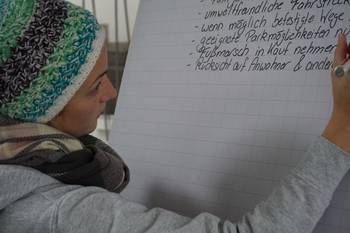 - umweltfreundliche Fahrstrecke
- wenn möglich befestigte Wege
- geeignete Parkmöglichkeiten
- Fußmarsch in Kauf nehmen
- Rücksicht auf Anwohner & andere